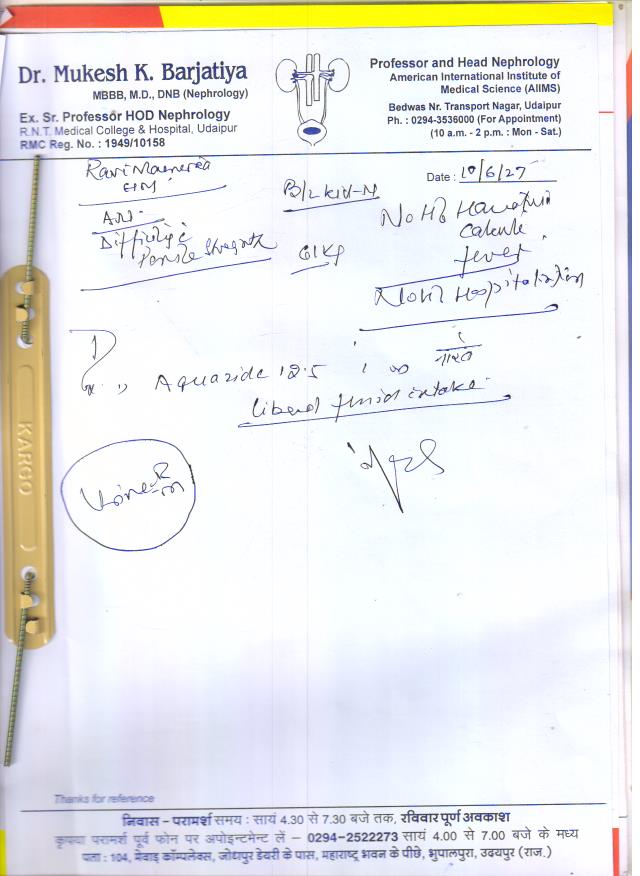 Dr. Mukesh K. Barjatiya
MBBB, M.D., DNB (Nephrology)
Ex. Sr. Professor HOD Nephrology
R.N.T. Medical College & Hospital, Udaipur
RMC Reg. No. : 1949/10158
Professor and Head Nephrology
American International Institute of
Medical Science (AIIMS)
Bedwas Nr. Transport Nagar, Udaipur
Ph. : 0294-3536000 (For Appointment)
(10 a.m. - 2 p.m. : Mon - Sat.)
Date :
Ravi
B/L
No H/o
fever
No H/o Hospitalization
Aquazide 12.5
liberal fluid intake
KARGO
Thanks for reference
निवास - परामर्श समय : सायं 4.30 से 7.30 बजे तक, रविवार पूर्ण अवकाश
कृपया परामर्श पूर्व फोन पर अपोइन्टमेन्ट लें – 0294-2522273 सायं 4.00 से 7.00 बजे के मध्य
पता : 104, मेवाड़ कॉम्पलेक्स, जोधपुर डेयरी के पास, महाराष्ट्र भवन के पीछे, भुपालपुरा, उदयपुर (राज.)